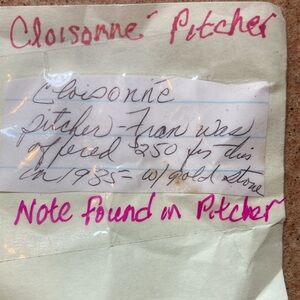 Cloisonné Pitcher
Cloisonné
pitcher - Fran was
offered $250 for this
in 1985 - w/gold stone
Note found in Pitcher